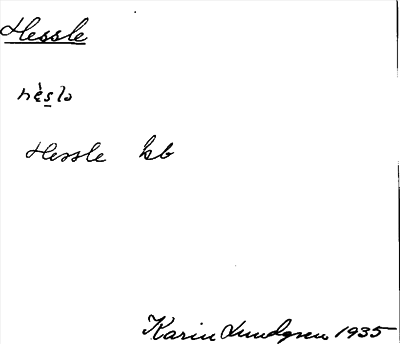 Hessle
hès̲lə
Hessle kb
Karin Lundgren 1935